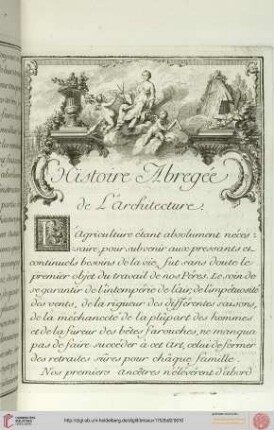 Histoire Abregée
de L'architecture.
L'Agriculture étant absolument néces:
saire, pour subvenir aux pressants et
continuels besoins de la vie, fut sans doute le
premier objet du travail de nos Péres. Le soin de
se garantir de l'intempérie de l'air, de l'impétuosité
des vents, de la rigueur des différentes saisons,
de la méchanceté de la plûpart des hommes
et de la fureur des bêtes farouches, ne manqua
pas de faire succéder à cet Art, celui de former
des retraites sûres pour châque famille.
Nos premiers ancêtres n'élevérent d'abord